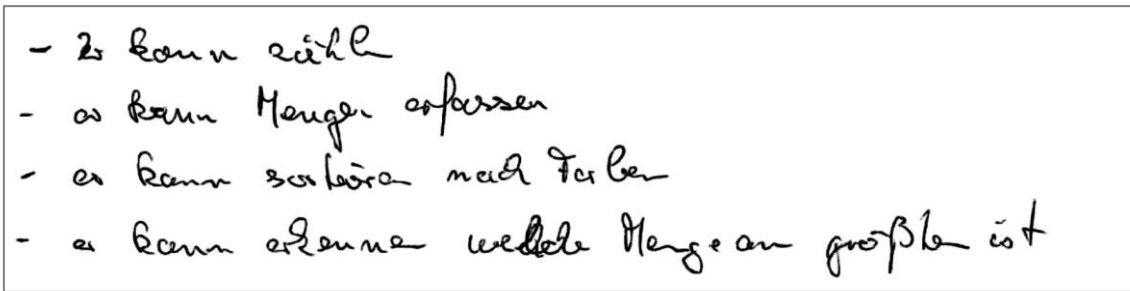 - Er kann zähln
- er kann Mengen erfassen
- er kann sortieren nach Farben
- er kann erkennen welche Menge am größten ist